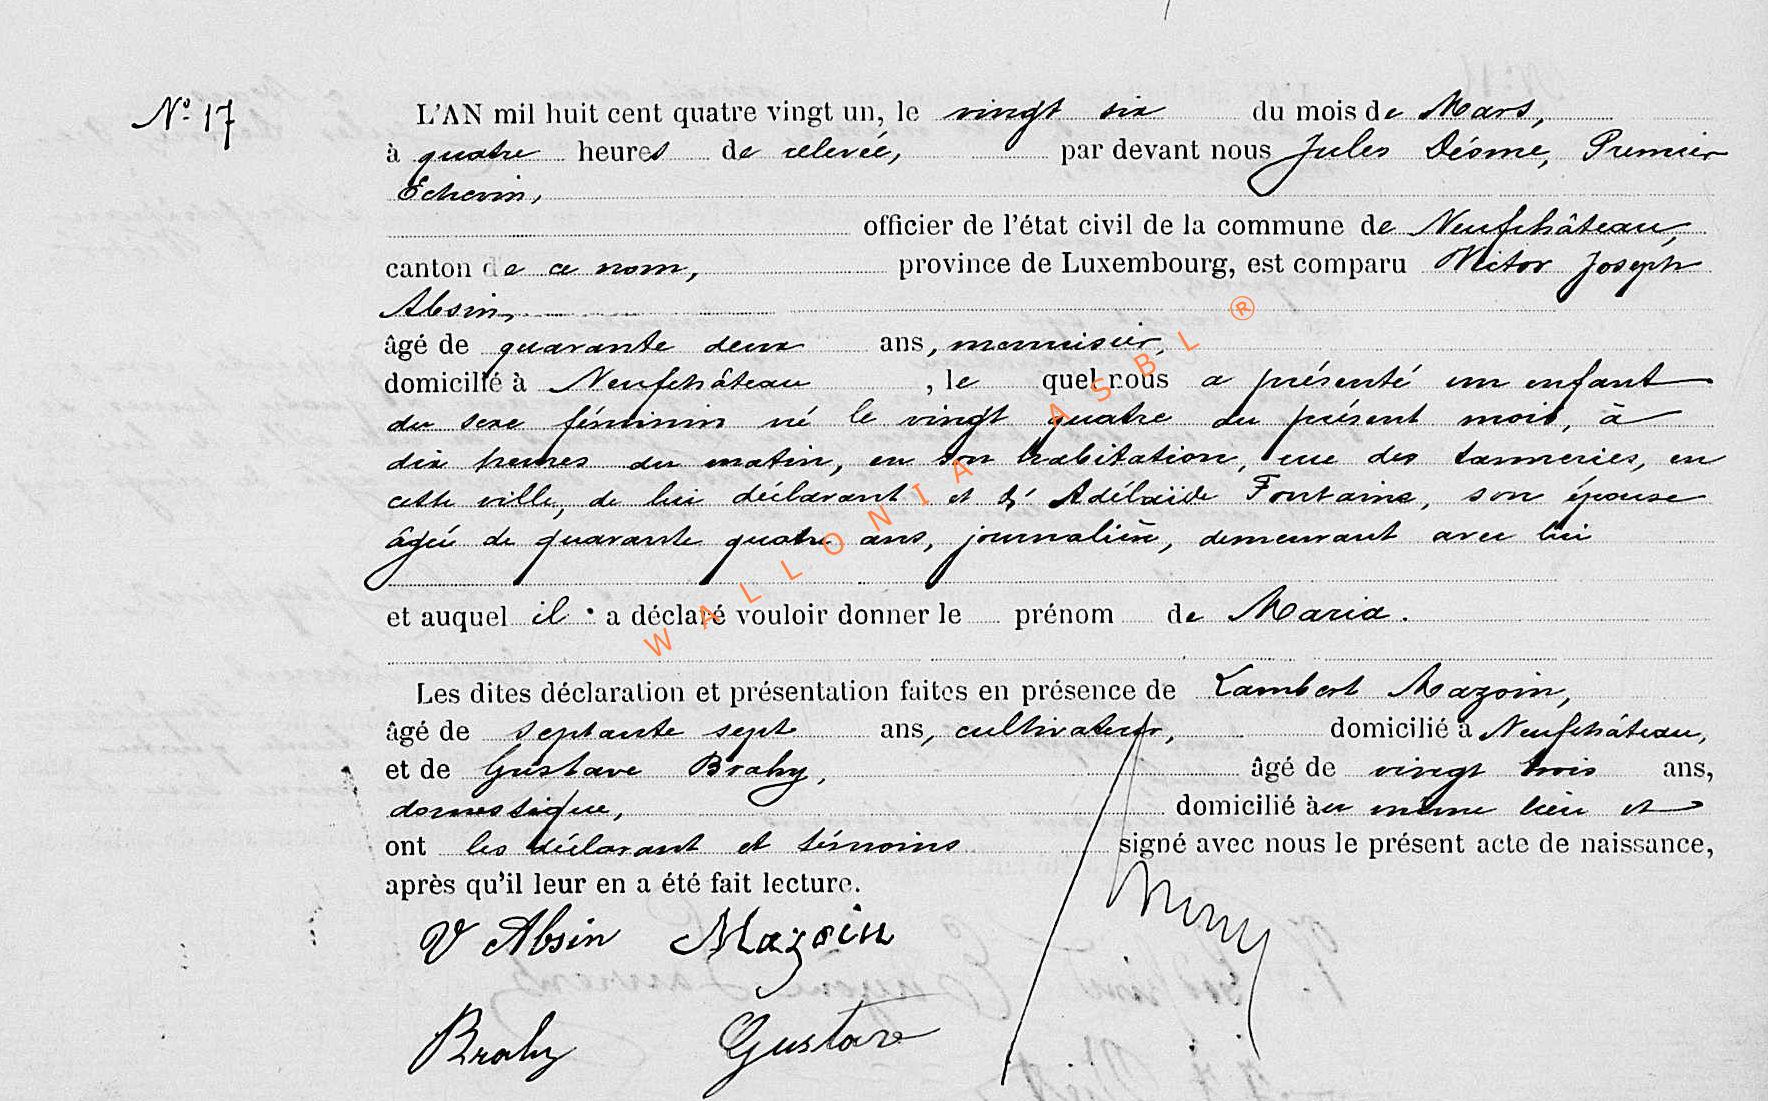 Nº 17
L'AN mil huit cent quatre vingt un, le vingt six du mois de Mars,
à quatre heures de relevée, par devant nous Jules Désme, Premier
Echevin,
officier de l'état civil de la commune de Neufchâteau,
canton de ce nom, province de Luxembourg, est comparu Victor Joseph
Absin,
âgé de quarante deux ans, menuisier,
domicilié à Neufchâteau, le quel nous a présenté un enfant
du sexe féminin né le vingt quatre du présent mois, à
dix heures du matin, en son habitation, rue des tanneries, en
cette ville, de lui déclarant et d'Adélaïde Fontaine, son épouse
âgée de quarante quatre ans, journalière, demeurant avec lui
et auquel il a déclaré vouloir donner le prénom de Maria.
Les dites déclaration et présentation faites en présence de Lambert Mazoin,
âgé de septante sept ans, cultivateur, domicilié à Neufchâteau,
et de Gustave Brahy, âgé de vingt trois ans,
domestique, domicilié au même lieu et
ont les déclarant et témoins signé avec nous le présent acte de naissance,
après qu'il leur en a été fait lecture.
V Absin Mazoin
Brahy Gustave
WALLONIA ASBL ®